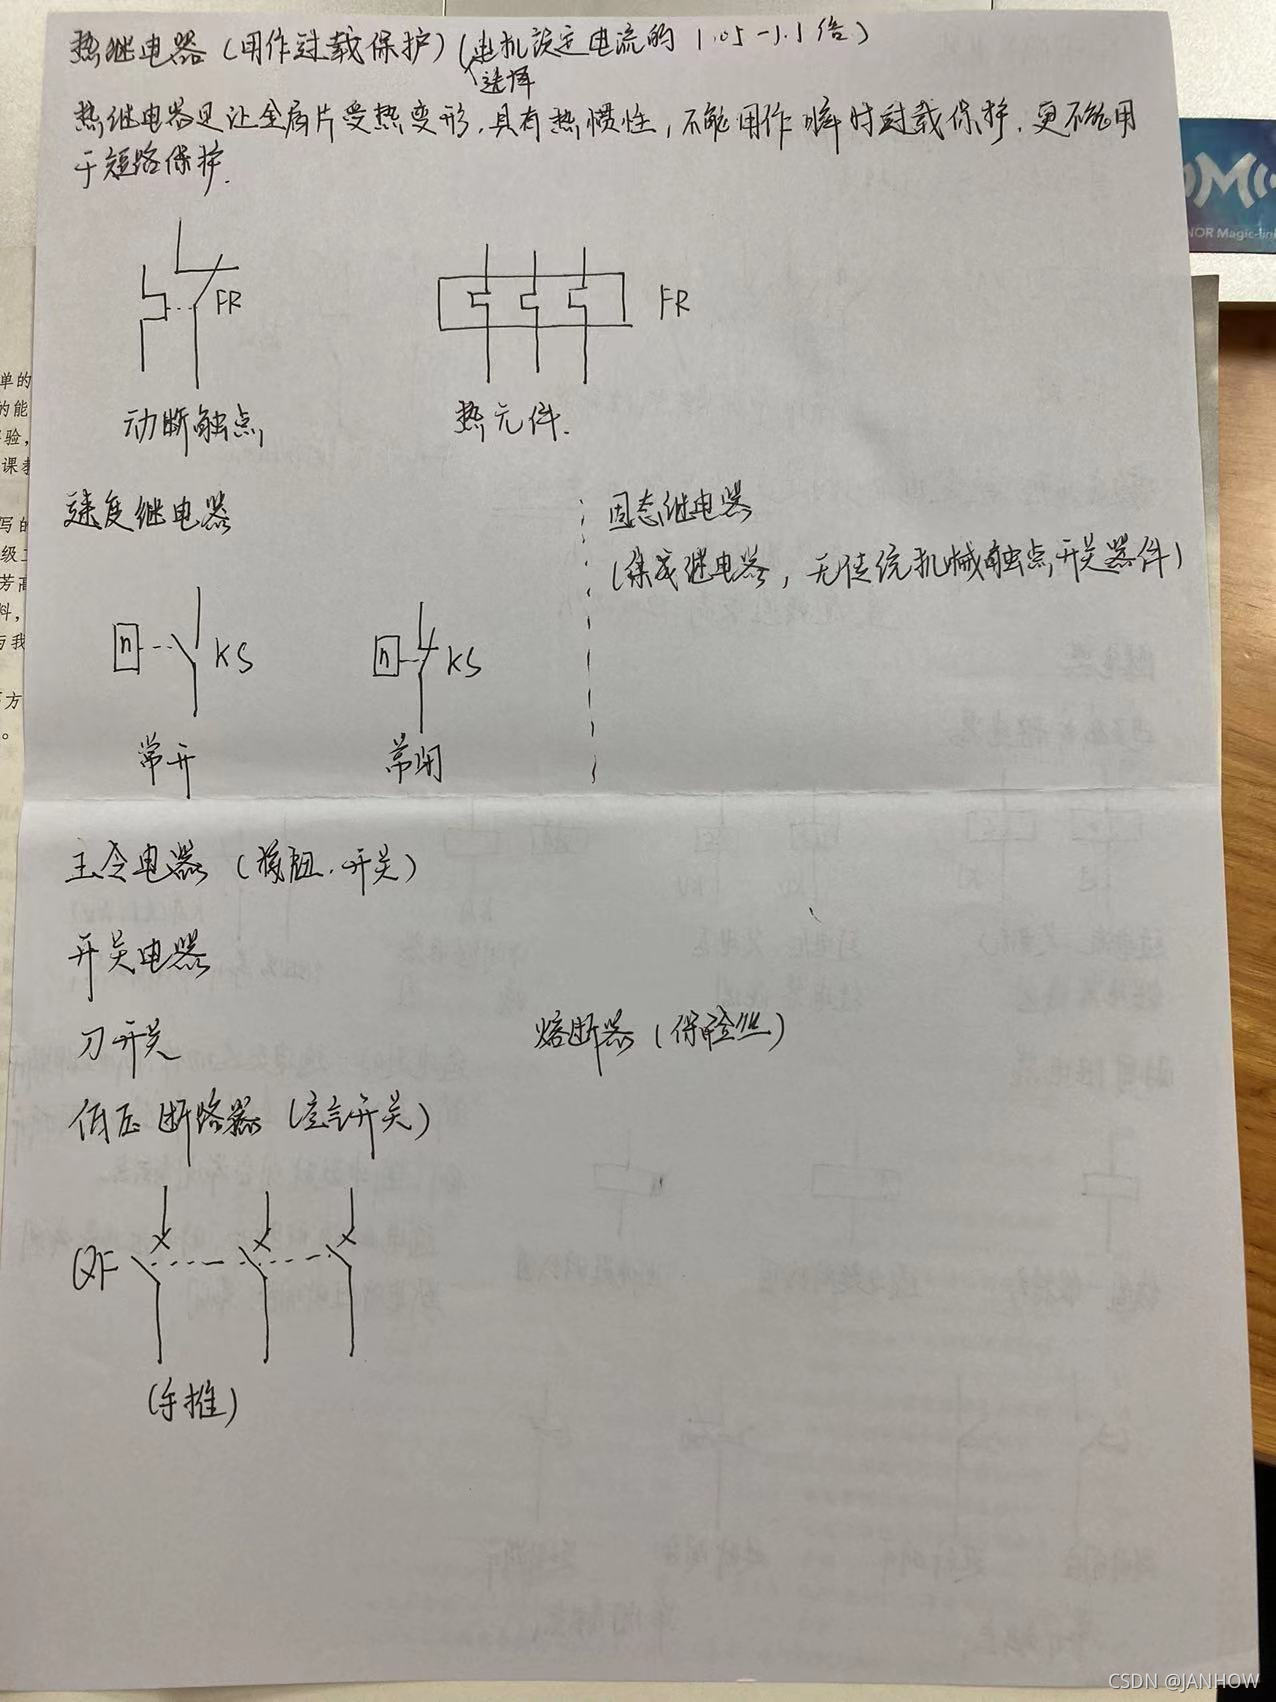 热继电器(用作过载保护)(选择电机设定电流的1.05-1.1倍)
热继电器是让金属片受热变形,具有热惯性,不能用作瞬时过载保护.更不能用
于短路保护.
FR
FR
动断触点
热元件.
速度继电器
固态继电器
(集成继电器,无传统机械触点开关器件)
n KS
n KS
常开
常闭
主令电器(按钮.开关)
开关电器
刀开关
熔断器(保险丝)
低压断路器(空气开关)
QF
(手推)
NOR Magic-link
单的
的能
验,
课教
写的
级工
芳高
料,
与我
方
。
CSDN @JANHOW